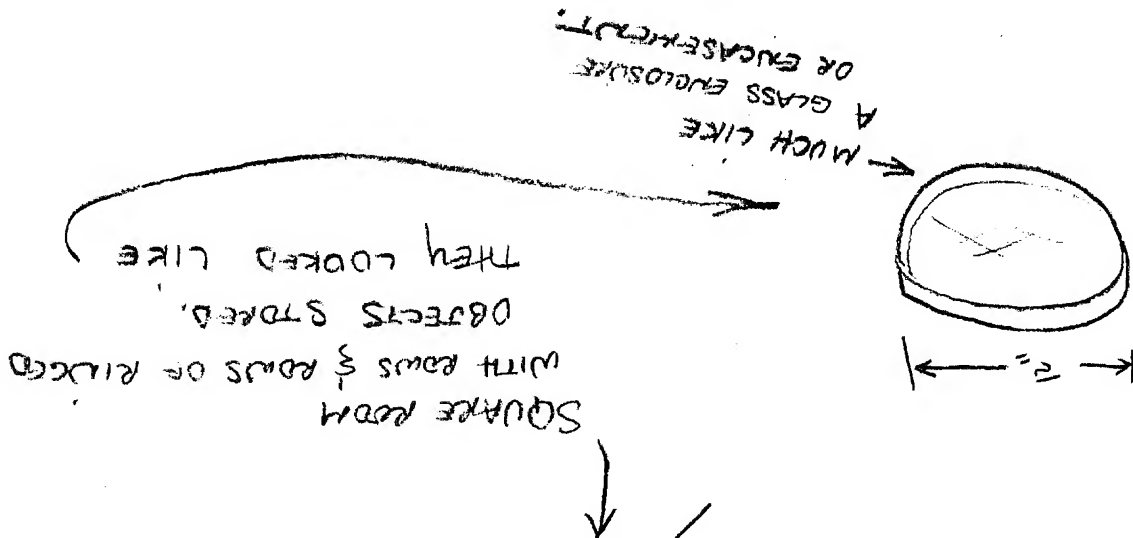 SQUARE ROOM
WITH ROWS & ROWS OF RINGED
OBJECTS STORED.
THEY LOOKED LIKE
MUCH LIKE
A GLASS ENCLOSURE
OR ENCASEMENT.
2"